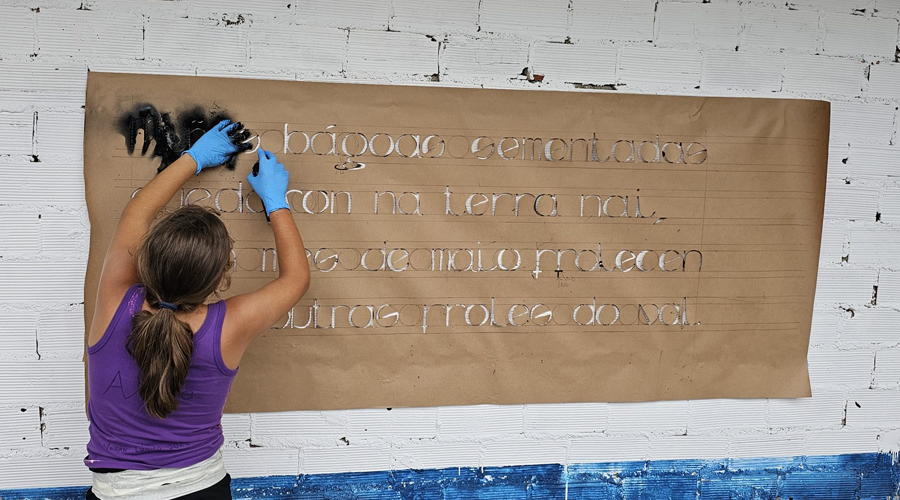 bágoas sementadas
quedaron na terra nai,
mes de maio frolecen
outras froles do val.